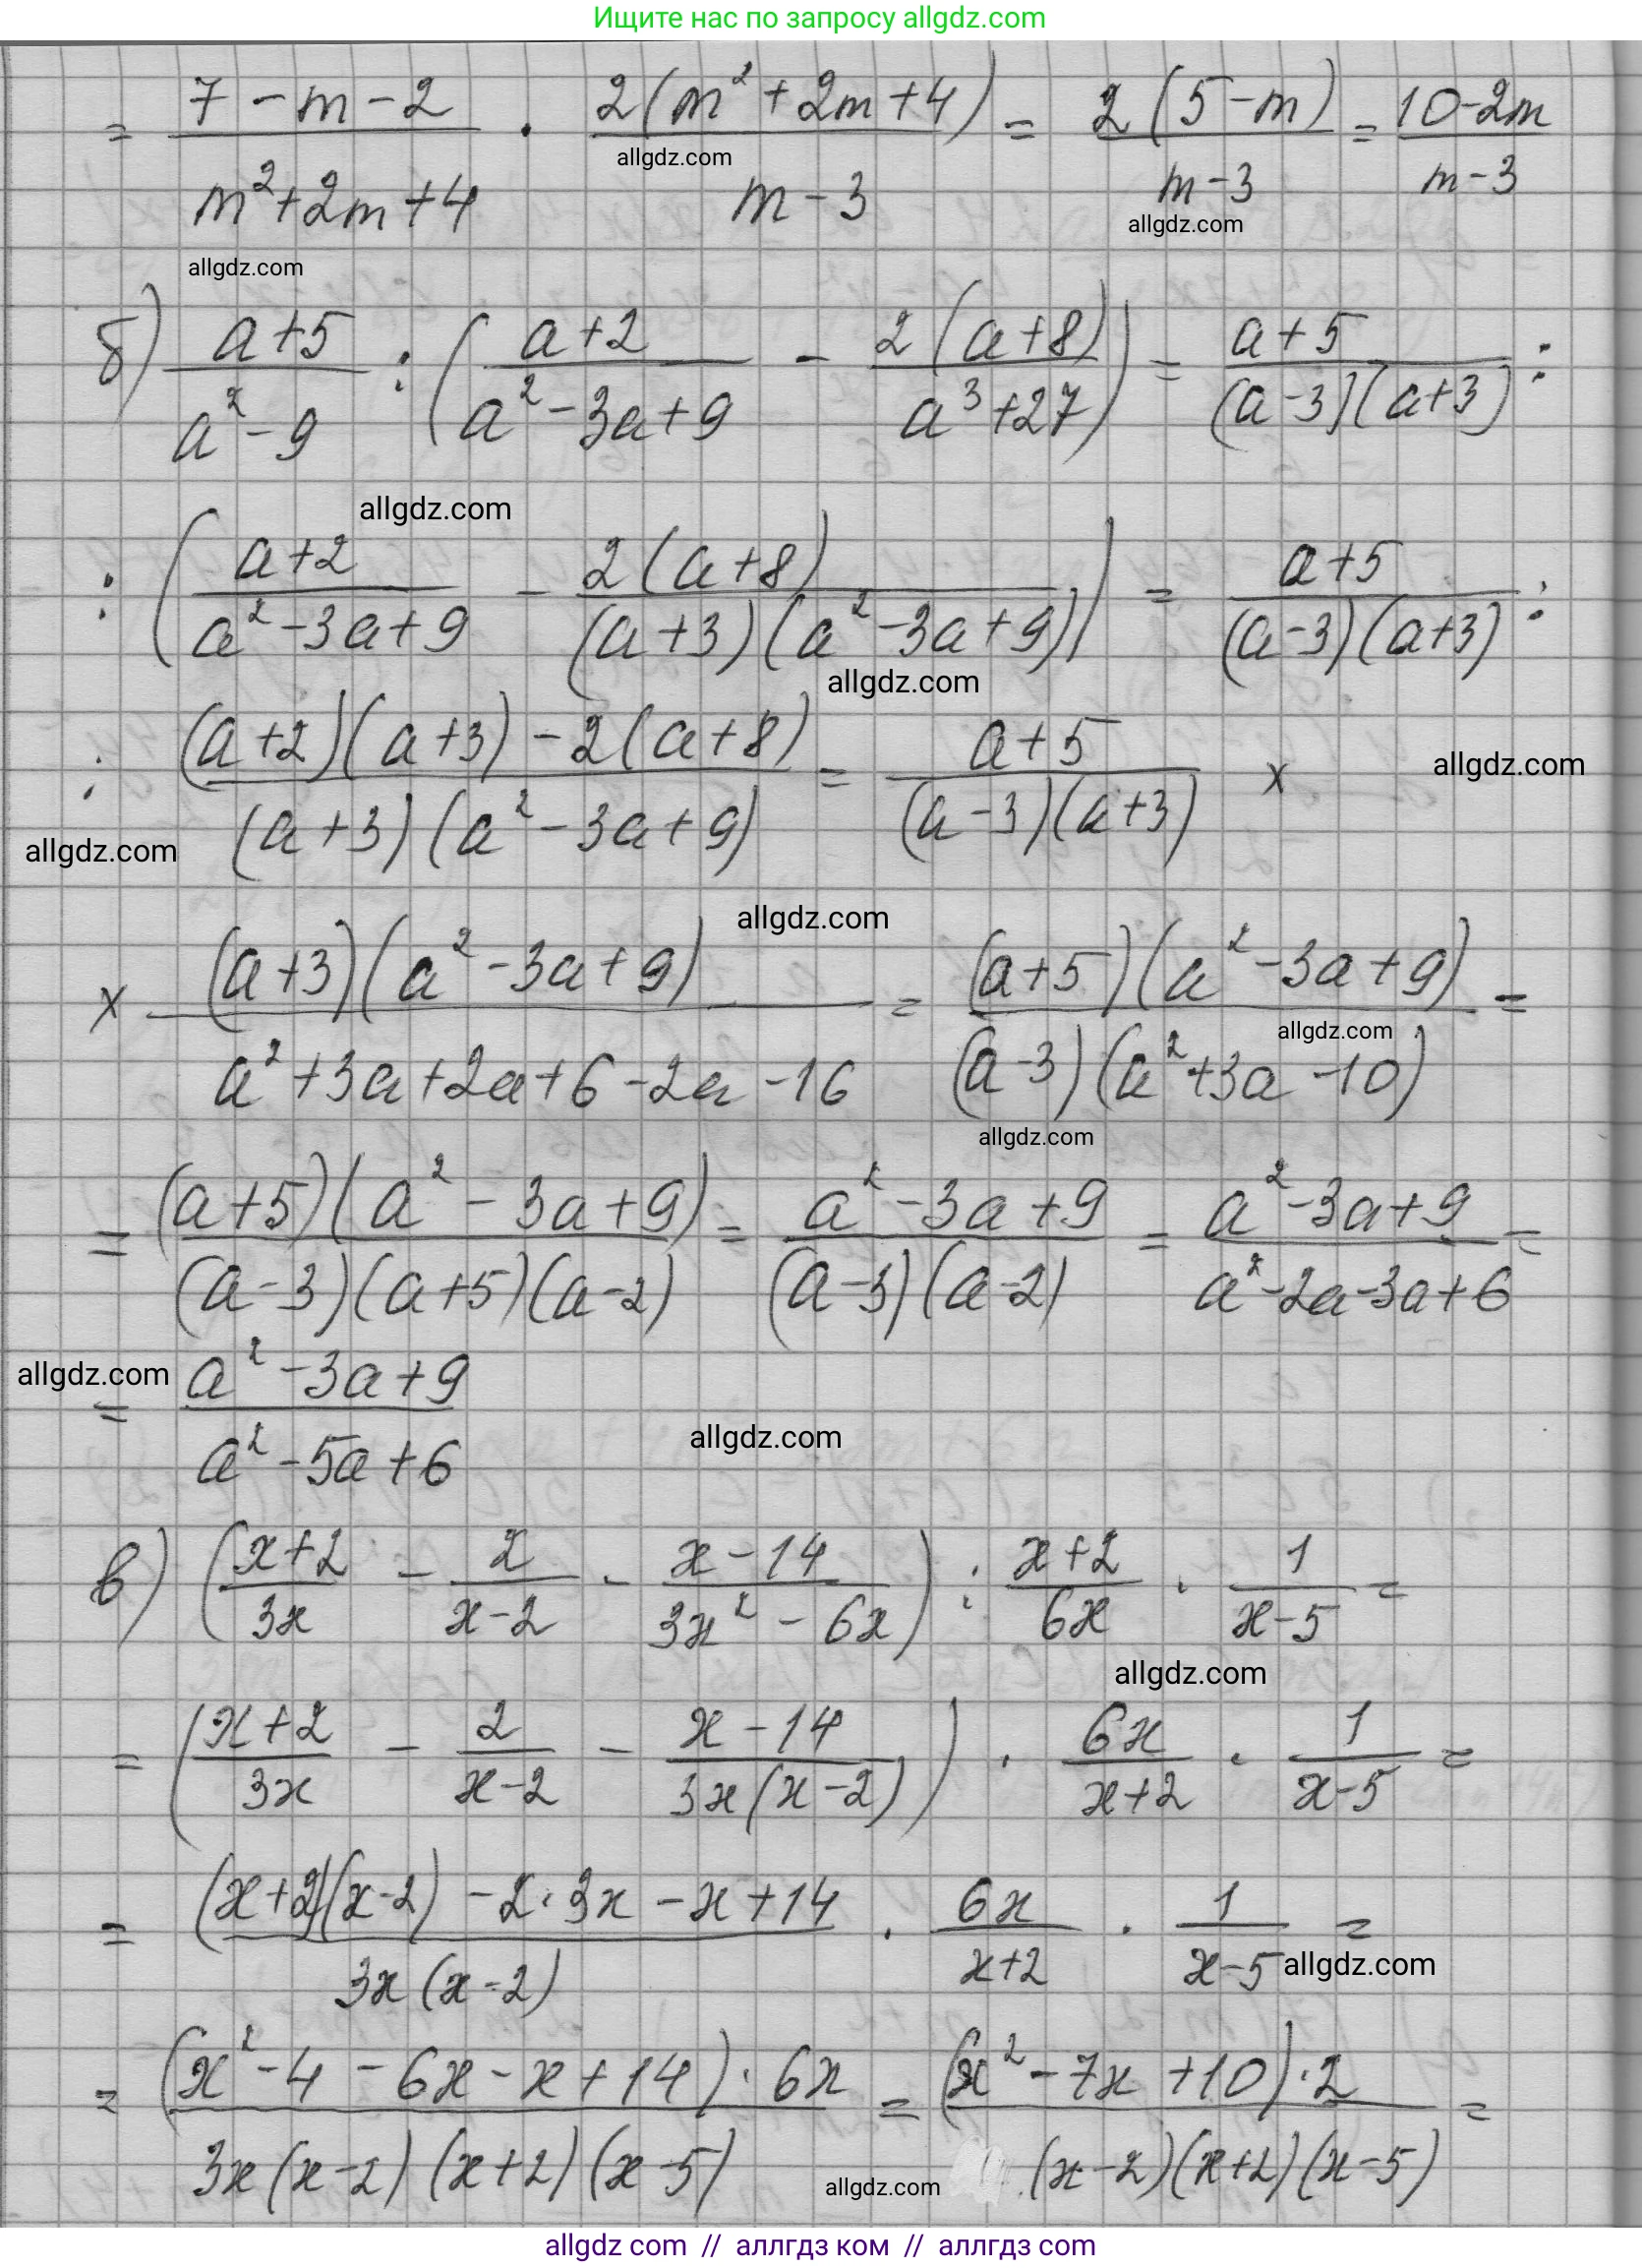 Ищите нас по запросу allgdz.com
= (7 - m - 2)/(m² + 2m + 4) · 2(m² + 2m + 4)/(m - 3) = 2(5 - m)/(m - 3) = (10 - 2m)/(m - 3)
allgdz.com
allgdz.com
allgdz.com
б) (a + 5)/(a² - 9) : ((a + 2)/(a² - 3a + 9) - 2(a + 8)/(a³ + 27)) = (a + 5)/((a - 3)(a + 3)) :
allgdz.com
: ((a + 2)/(a² - 3a + 9) - 2(a + 8)/((a + 3)(a² - 3a + 9))) = (a + 5)/((a - 3)(a + 3)) :
allgdz.com
: ((a + 2)(a + 3) - 2(a + 8))/((a + 3)(a² - 3a + 9)) = (a + 5)/((a - 3)(a + 3)) x
allgdz.com
allgdz.com
allgdz.com
x (a + 3)(a² - 3a + 9)/(a² + 3a + 2a + 6 - 2a - 16) = (a + 5)(a² - 3a + 9)/((a - 3)(a² + 3a - 10)) =
allgdz.com
allgdz.com
= (a + 5)(a² - 3a + 9)/((a - 3)(a + 5)(a - 2)) = (a² - 3a + 9)/((a - 3)(a - 2)) = (a² - 3a + 9)/(a² - 2a - 3a + 6) =
allgdz.com
= (a² - 3a + 9)/(a² - 5a + 6)
allgdz.com
в) ((x + 2)/3x - 2/(x - 2) - (x - 14)/(3x² - 6x)) : (x + 2)/6x · 1/(x - 5) =
allgdz.com
= ((x + 2)/3x - 2/(x - 2) - (x - 14)/(3x(x - 2))) · 6x/(x + 2) · 1/(x - 5) =
= ((x + 2)(x - 2) - 2 · 3x - x + 14)/(3x(x - 2)) · 6x/(x + 2) · 1/(x - 5) =
allgdz.com
= (x² - 4 - 6x - x + 14) · 6x/(3x(x - 2)(x + 2)(x - 5)) = (x² - 7x + 10) · 2/((x - 2)(x + 2)(x - 5)) =
allgdz.com
allgdz com // аллгдз ком // аллгдз com